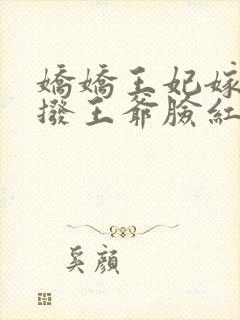 嬌嬌王妃嫁
撥王爺臉紅
奚顏